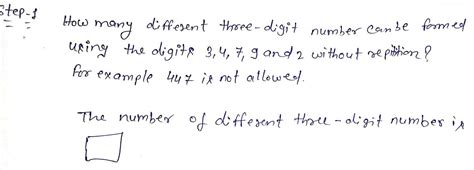 Step-1
How many different three-digit number can be formed
using the digits 3, 4, 7, 9 and 2 without repition?
for example 447 is not allowed.
The number of different three-digit number is